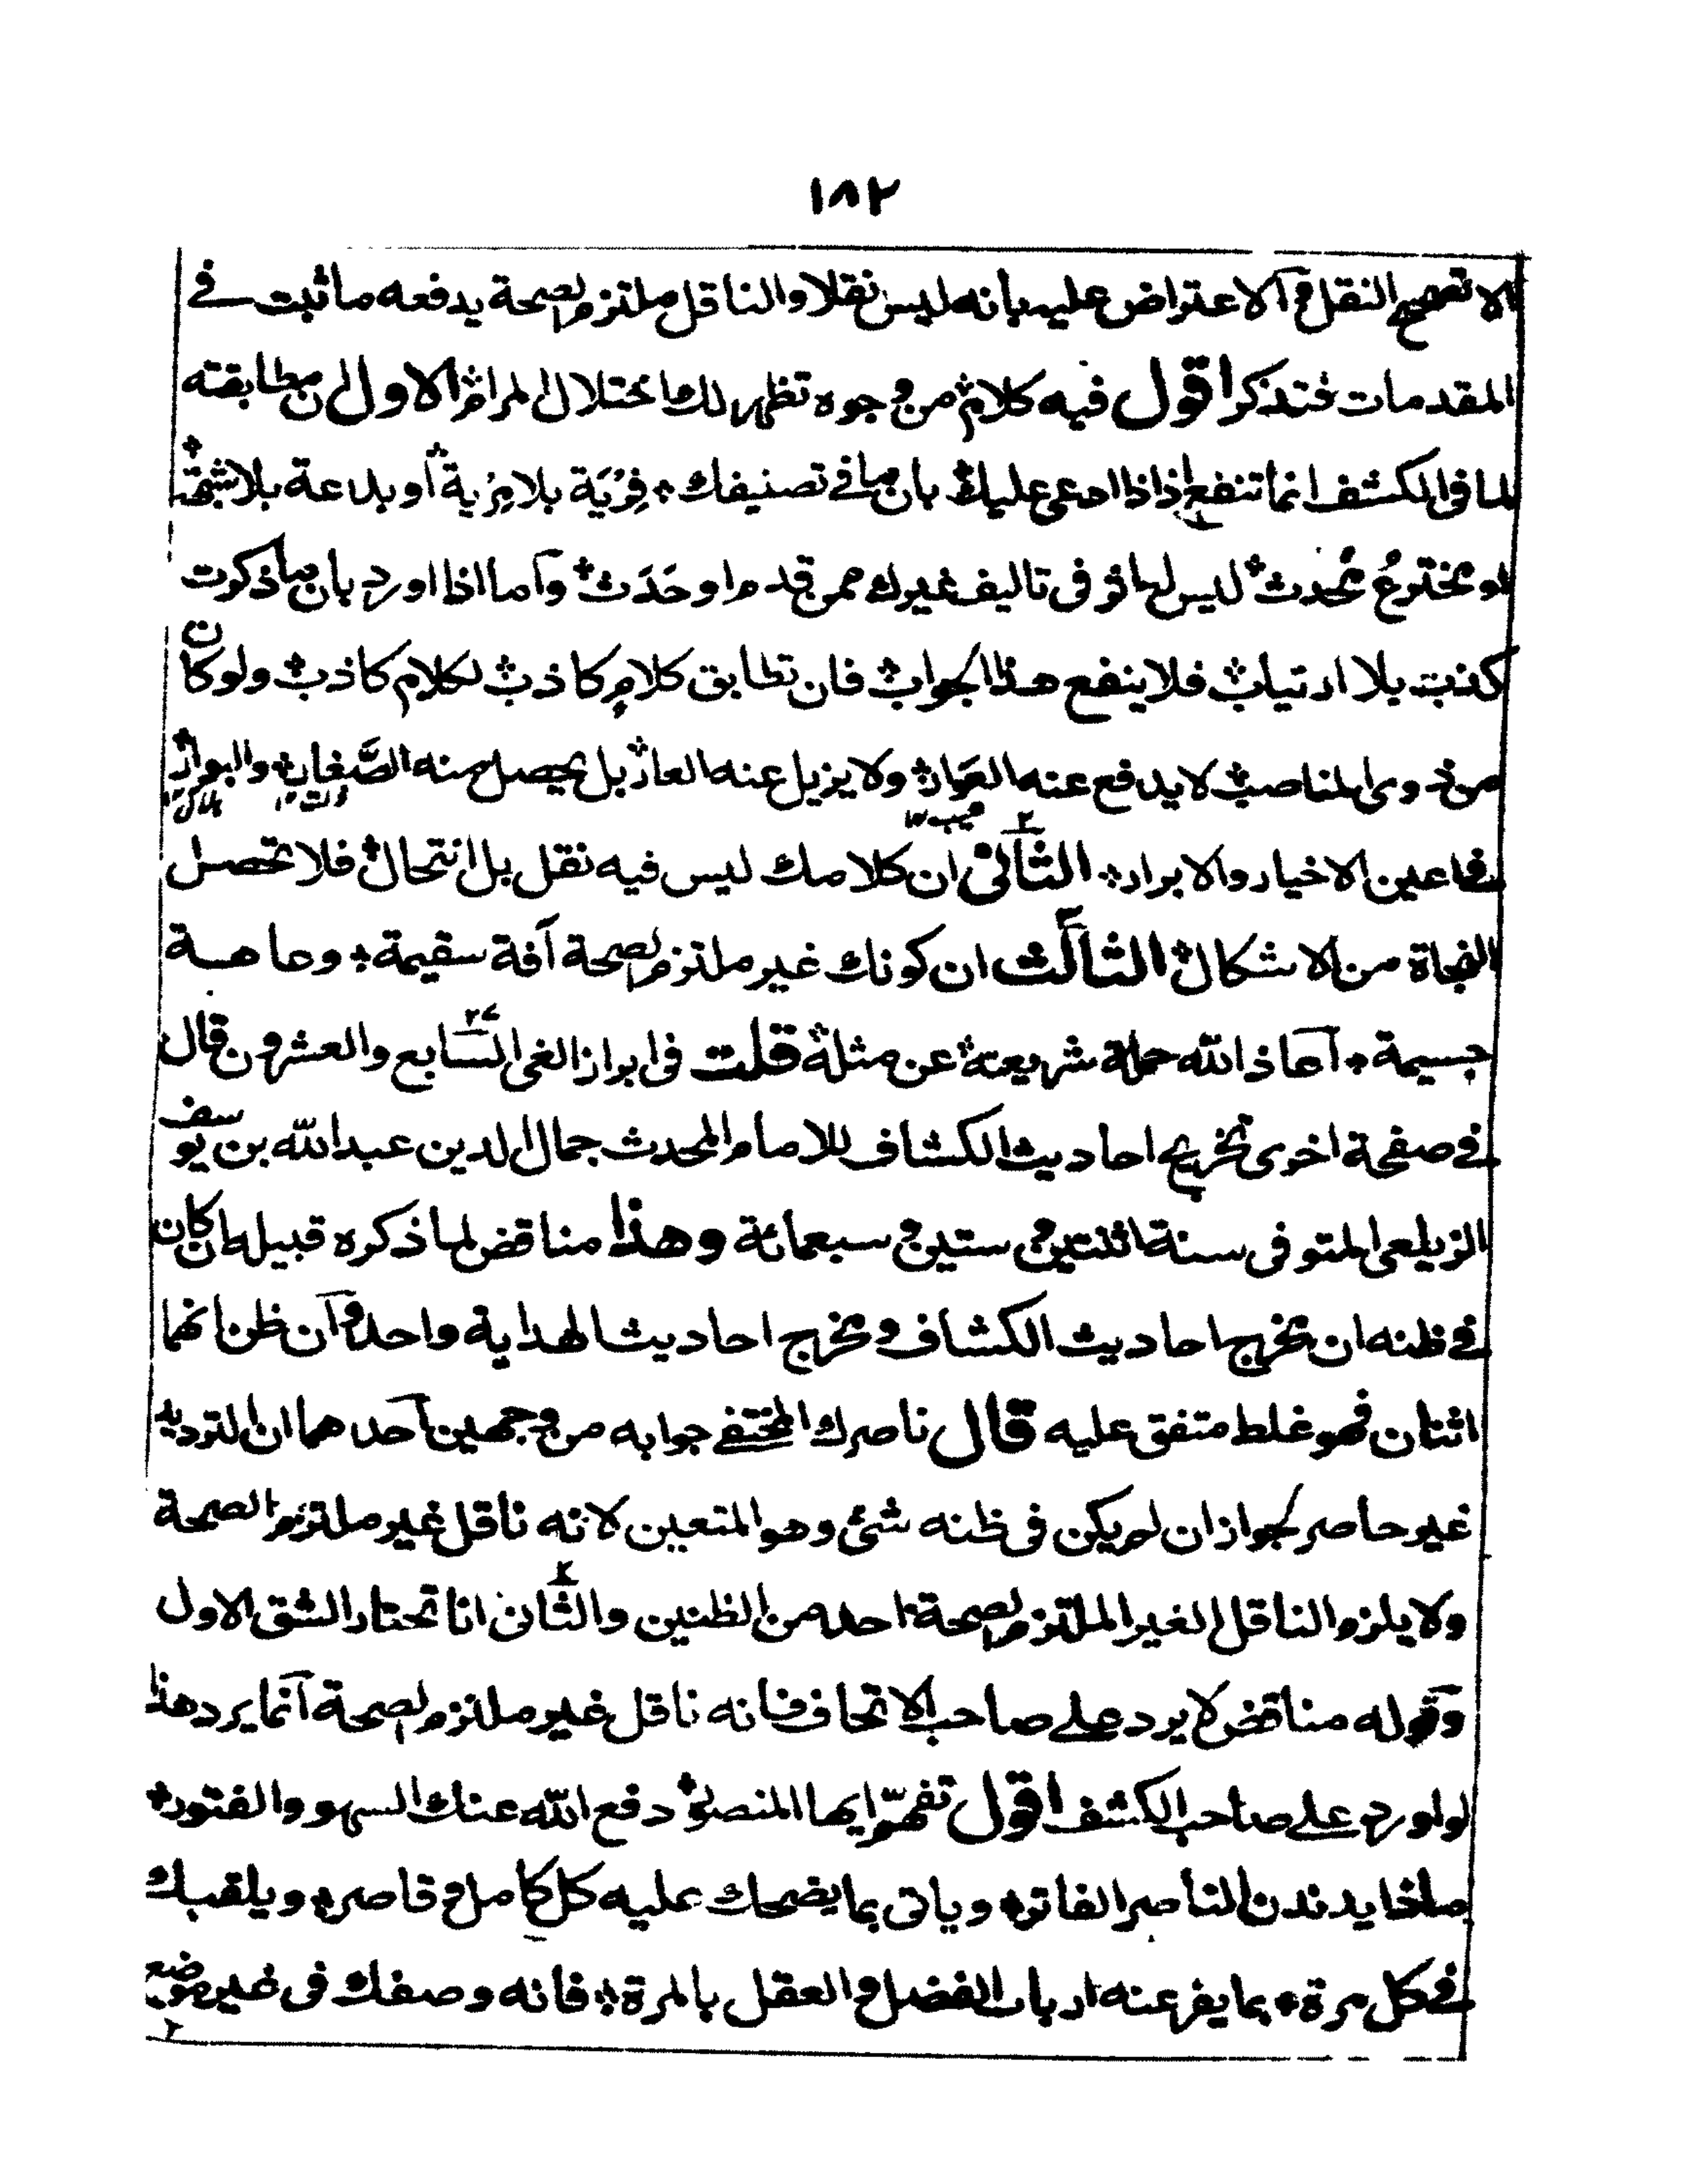 ١٨٢
الا تصحيح النقل وآلاعتراض عليه بأنه ليس نقلا والناقل ملتزم لصحة يدفعه ما ثبت في
المقدمات فتذكر اقول فيه كلام من وجوه تظهر لك ما اختلال المرام الاول ان مطابقته
لما في الكشف انما تنفع اذا ادعى عليك بان ما في تصنيفك فِرْيَة بلا مِرْية أو بدعة بلا شبهة
او مخترعُ مُحدث ليس له اثر في تاليف غيرك ممن قدم او حَدَث وآما اذا اورد بان ما ذكرت
كذب بلا ارتياب فلا ينفع هذا الجواب فان تطابق كلامٍ كاذب لكلام كاذب ولو كان
من ذوى المناصب لا يدفع عنه العَوَار ولا يزيل عنه العار بل يحصل منه الصَّغار والبوار
في اعين الاخيار والابرار الثآنى ان كلامك ليس فيه نقل بل انتحال فلا تحصل
النجاة من الاشكال الثالث ان كونك غير ملتزم لصحة آفة سقيمة وعاهة
جسيمة آعاذ الله حملة شريعته عن مثله قلت في ابراز الغى السابع والعشرون قال
في صفحة اخرى تخريج احاديث الكشاف للامام المحدث جمال الدين عبد الله بن يوسف
الزيلعى المتوفى سنة اثنتين وستين وسبعمائة وهذا مناقض لما ذكره قبيله ان كان
في ظنه ان تخريج احاديث الكشاف وتخرج احاديث الهداية واحد وآن ظن انهما
اثنان فهو غلط متفق عليه قال ناصرك المختفي جوابه من وجهين آحدهما ان الترديد
غير حاصر لجواز ان لم يكن في ظنه شئ وهو المتعين لانه ناقل غير ملتزم الصحة
ولا يلزم الناقل الغير الملتزم لصحة احد من الظنين والثانى انا نختار الشق الاول
وقوله مناقض لا يرد على صاحب الاتحاف فانه ناقل غير ملتزم لصحة آنما يرد هذا
لو اورد على صاحب الكشف اقول تفهّم ايها المنصور دفع الله عنك السهو والفتور
ماذا يدندن الناصر الفاتر وياتى بما يضحك عليه كل كامل وقاصر ويلقبك
في كل مرة بما يفر عنه ارباب الفضل والعقل بالمرة فانه وصفك في غير موضع